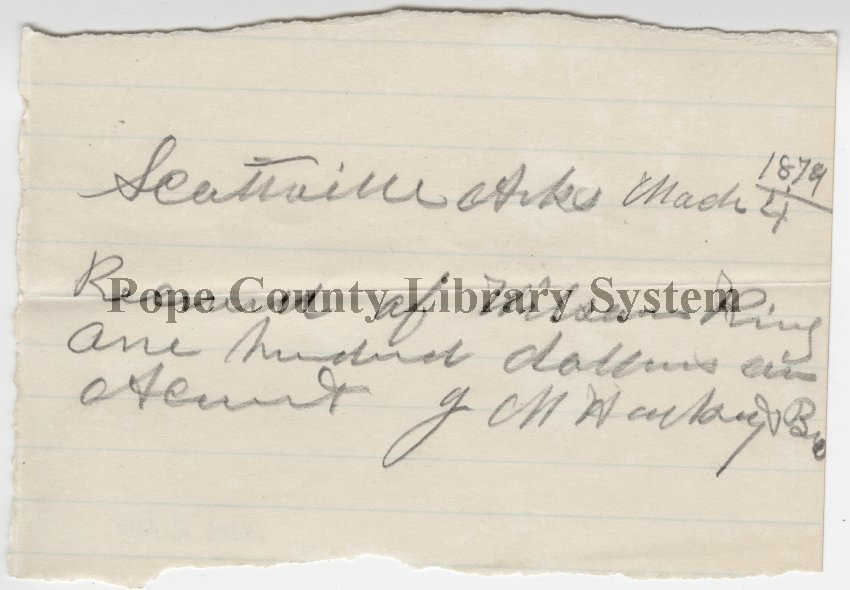 Scottville Arks Mach 1879/4
Received of Wilson King
Pope County Library System
one hundred dollars on
Acount J M Harkey & Bro